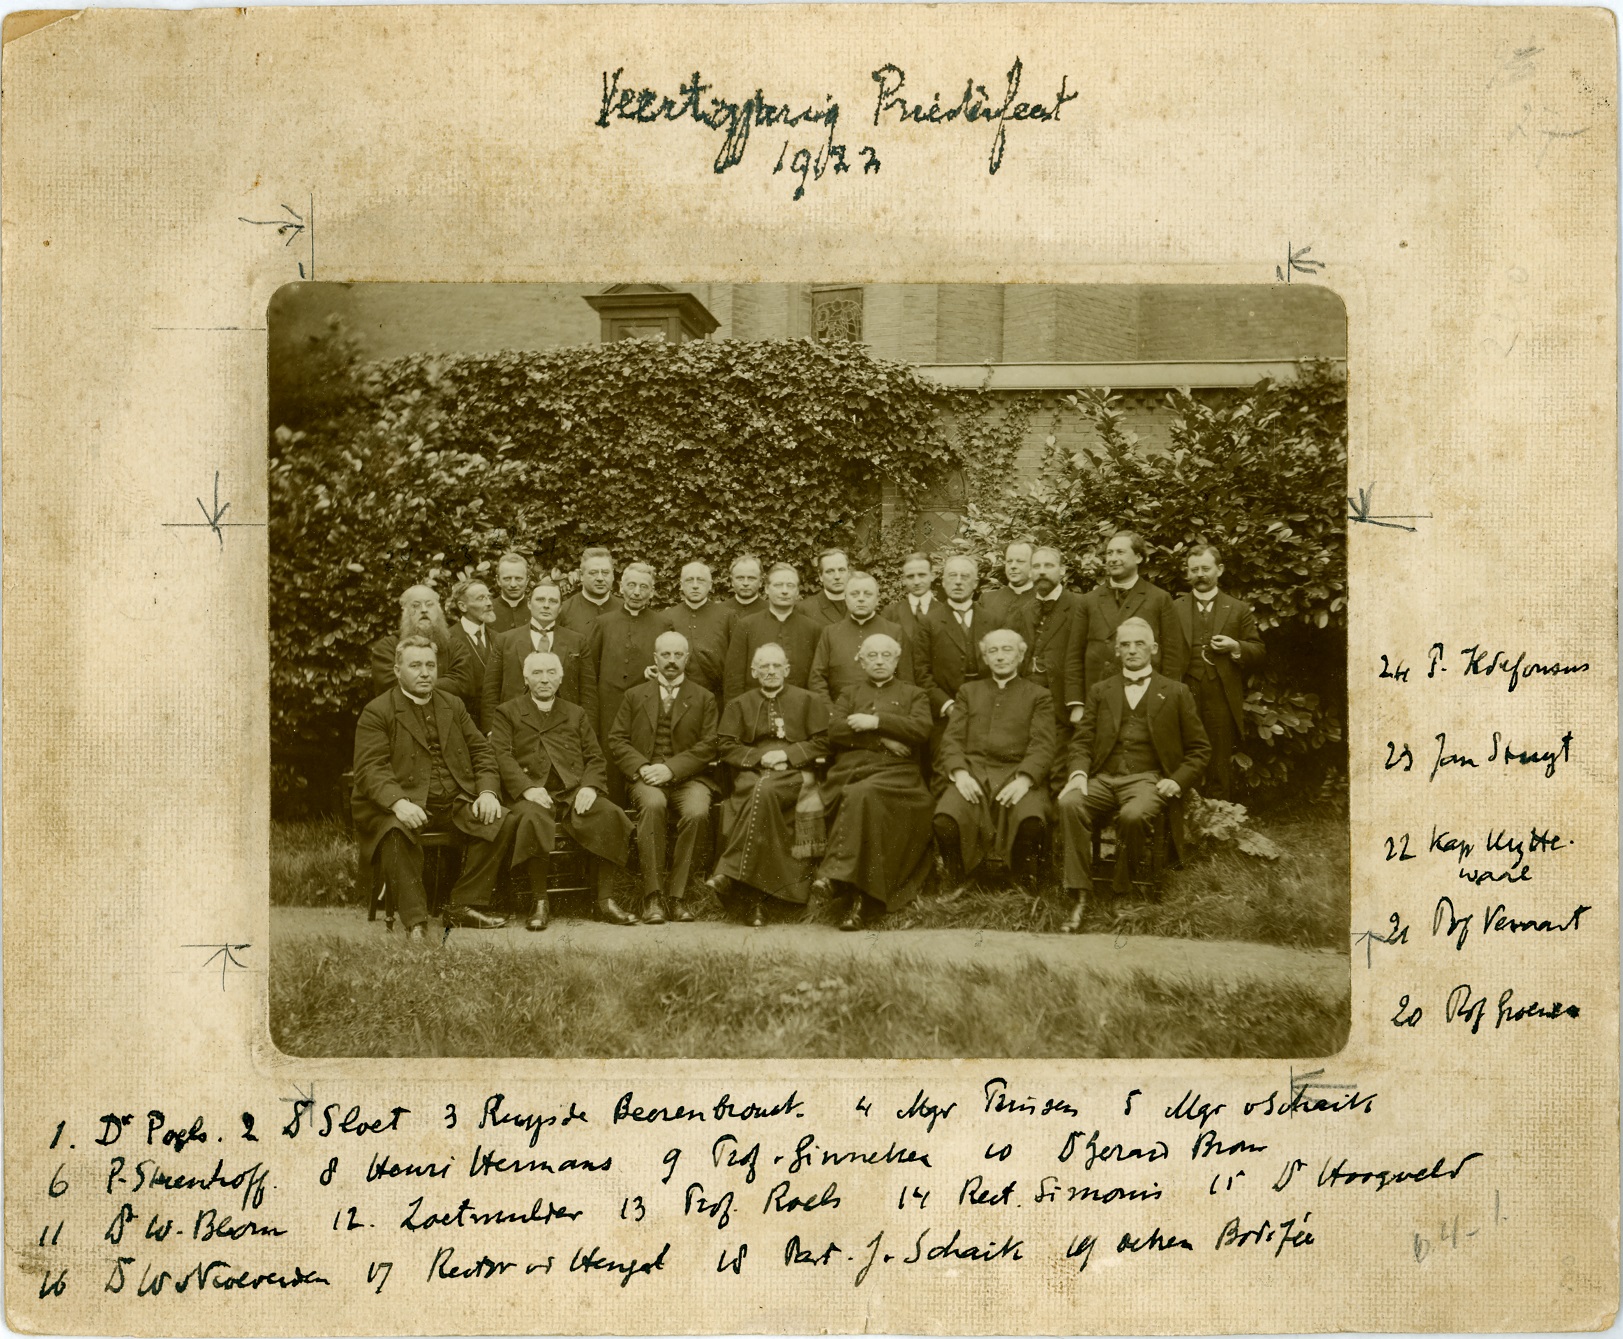 Veertigjarig Priesterfeest
1922
24 P. Ildefonsus
23 Jan Stuyt
22 Kap Uytte-
waal
21 Prof Veraart
20 Prof Groenen
1. Dr Poels. 2 Dr Sloet 3 Ruys de Beerenbrouck. 4 Mgr 5 Mgr v Schaik
6 P. Steenhoff. 8 Henri Hermans 9 Prof. Ginneken 10 Dr Gerard Brom
11 Dr W. Blom 12. Zoetmulder 13 Prof. Roels 14 Rect. Simonis 15 Dr Hoogveld
16 Dr W v Nieuwenhu 17 Rector vd Hengel 18 Past. J. v. Schaik 19 deken Bodifée
64-1